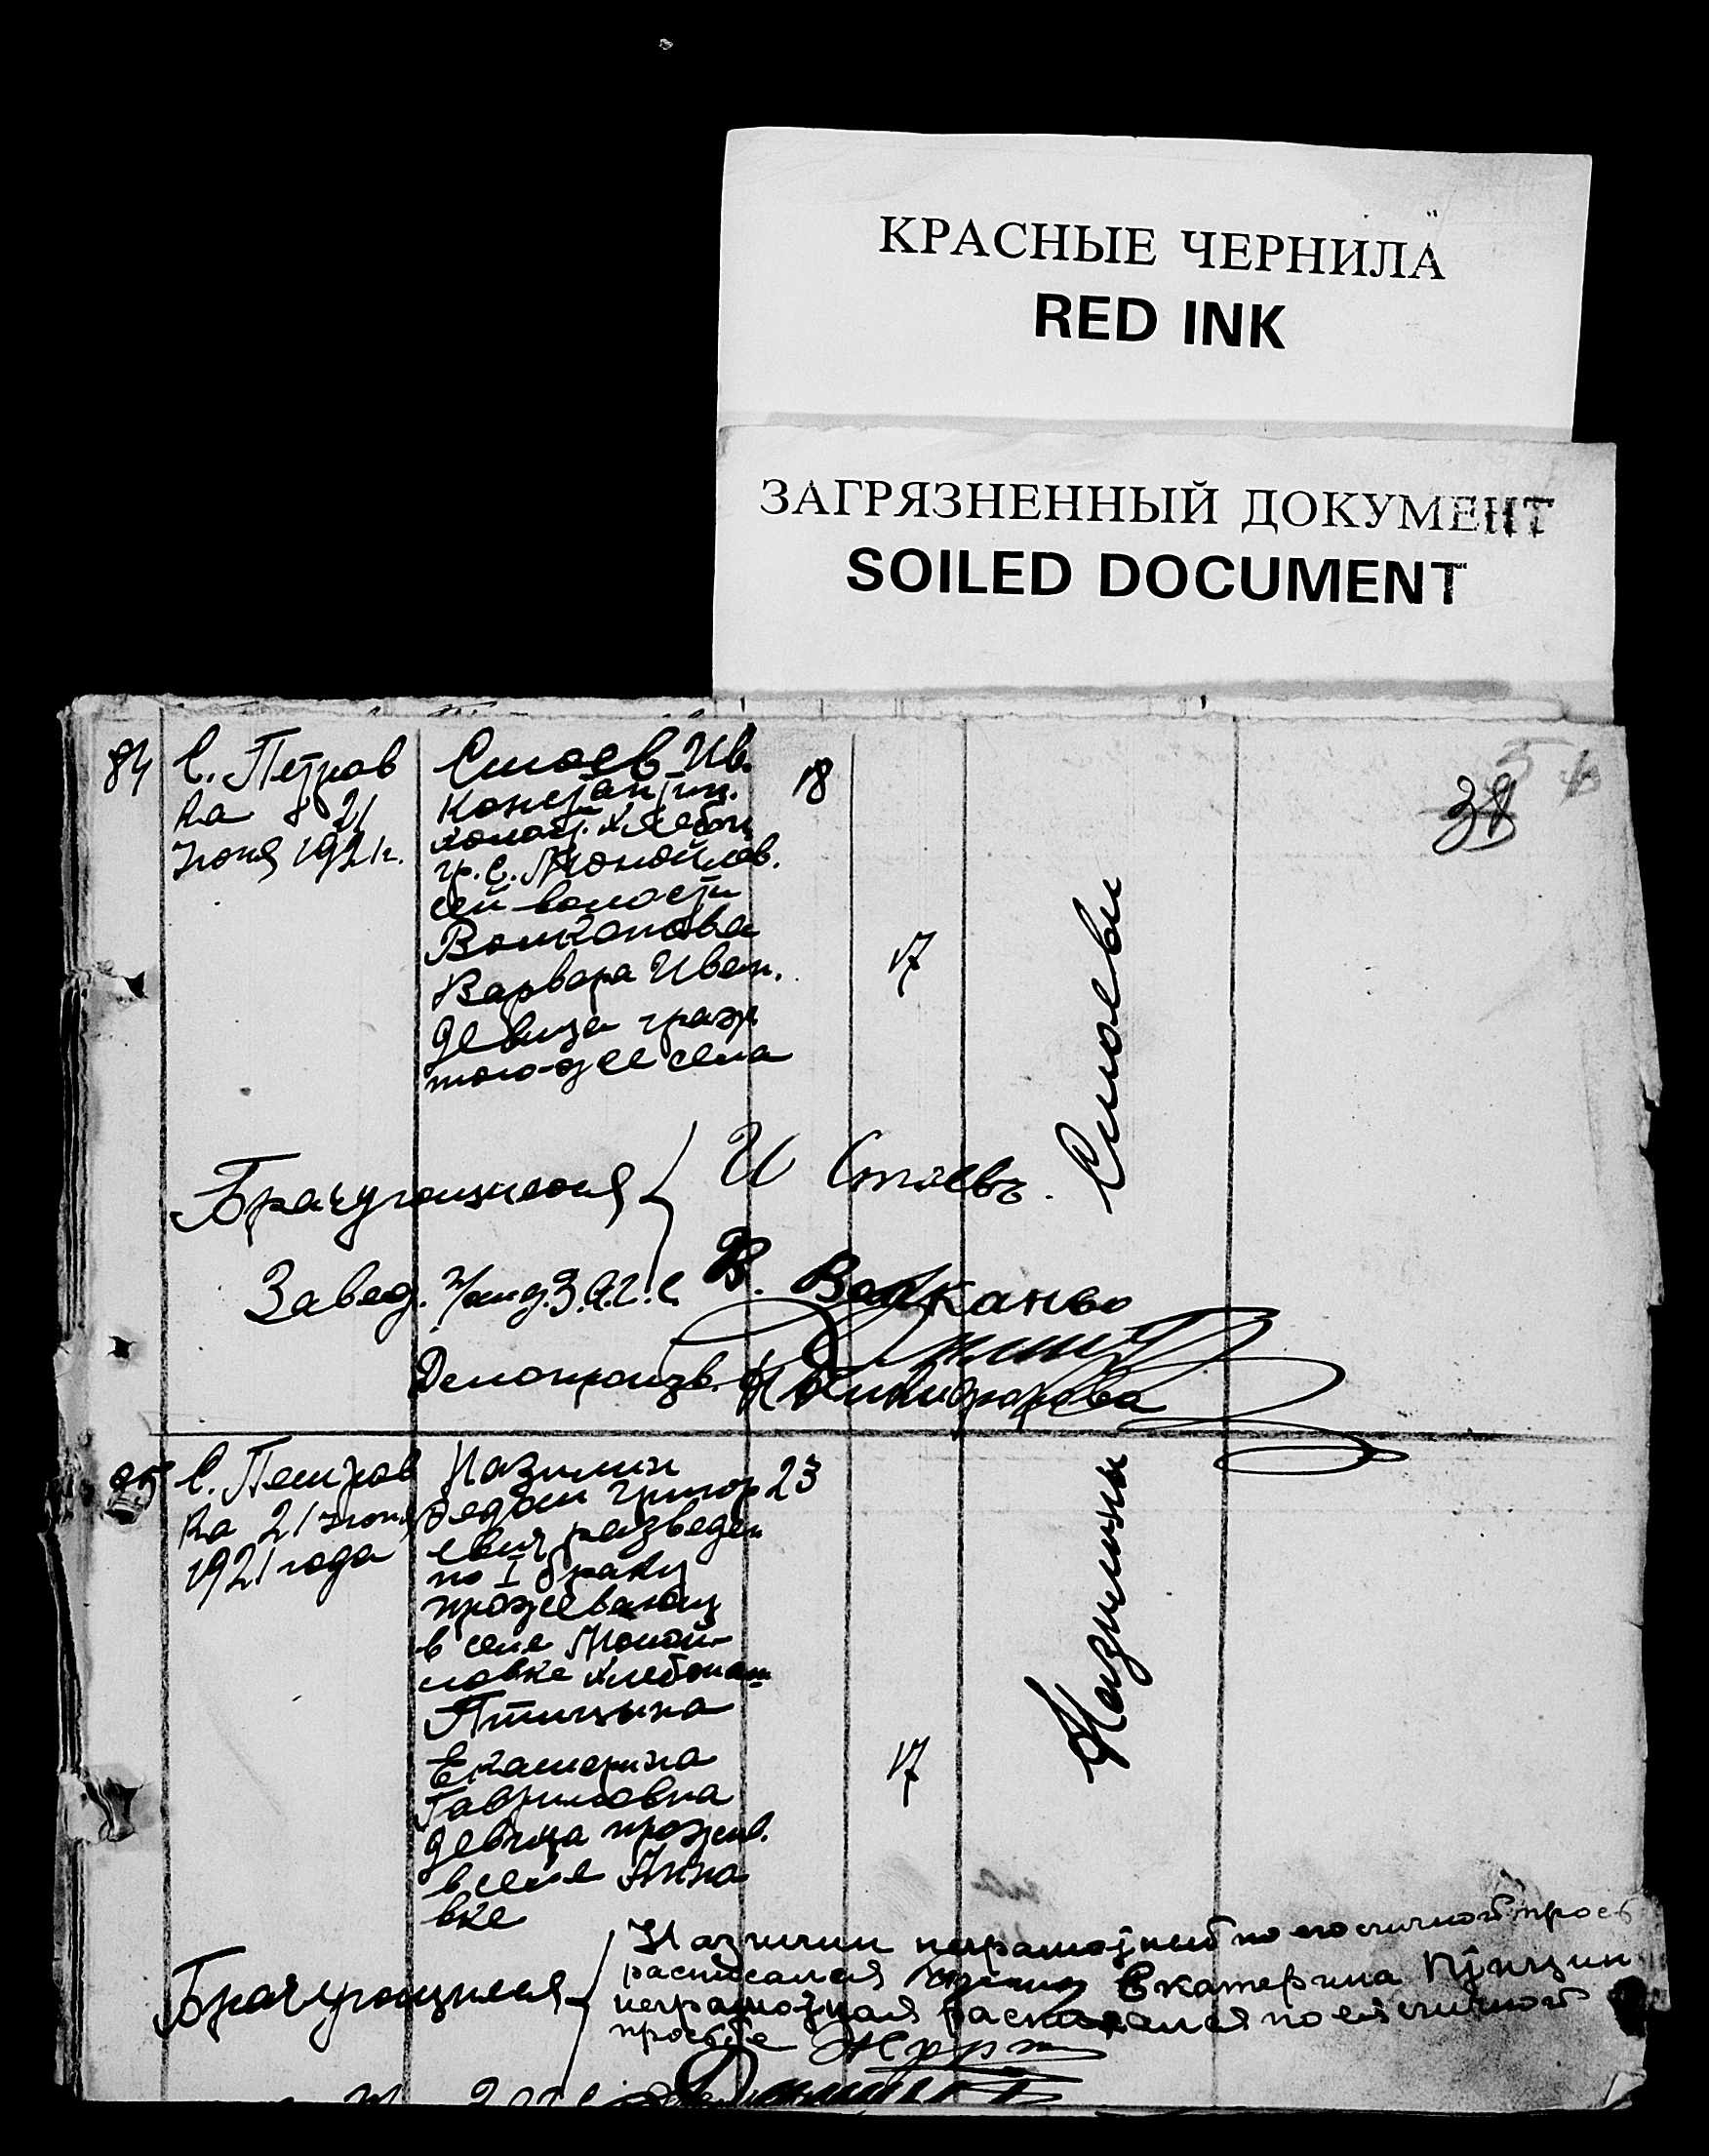 КРАСНЫЕ ЧЕРНИЛА
RED INK
ЗАГРЯЗНЕННЫЙ ДОКУМЕНТ
SOILED DOCUMENT
38
84
С. Петров
ка 21
июня 1921г.
Стоев Ив.
Константин.
холост. хлебоп
гр. С.
сей волости
Волканова
Варвара Иван.
девица граж
того-же села
18
17
Стоевы
Брачующиеся
И Стоевъ.
В. Волканво
Завед. З.А.Г.С.
Делопроизв.
85
С. Петров
ка 21 июня
1921 года
Назимин
Федот Григор
евич разведен
по I браку
проживающ
в селе Маной-
ловке хлебопаш
Птицына
Екатерина
Гавриловна
девица прожив.
в селе Анно
вке
23
17
Назимины
Брачующиеся
Назимин неграмотный по его личной прось
расписался Екатерина Птицин
неграмотная расписался по её личной
просьбе